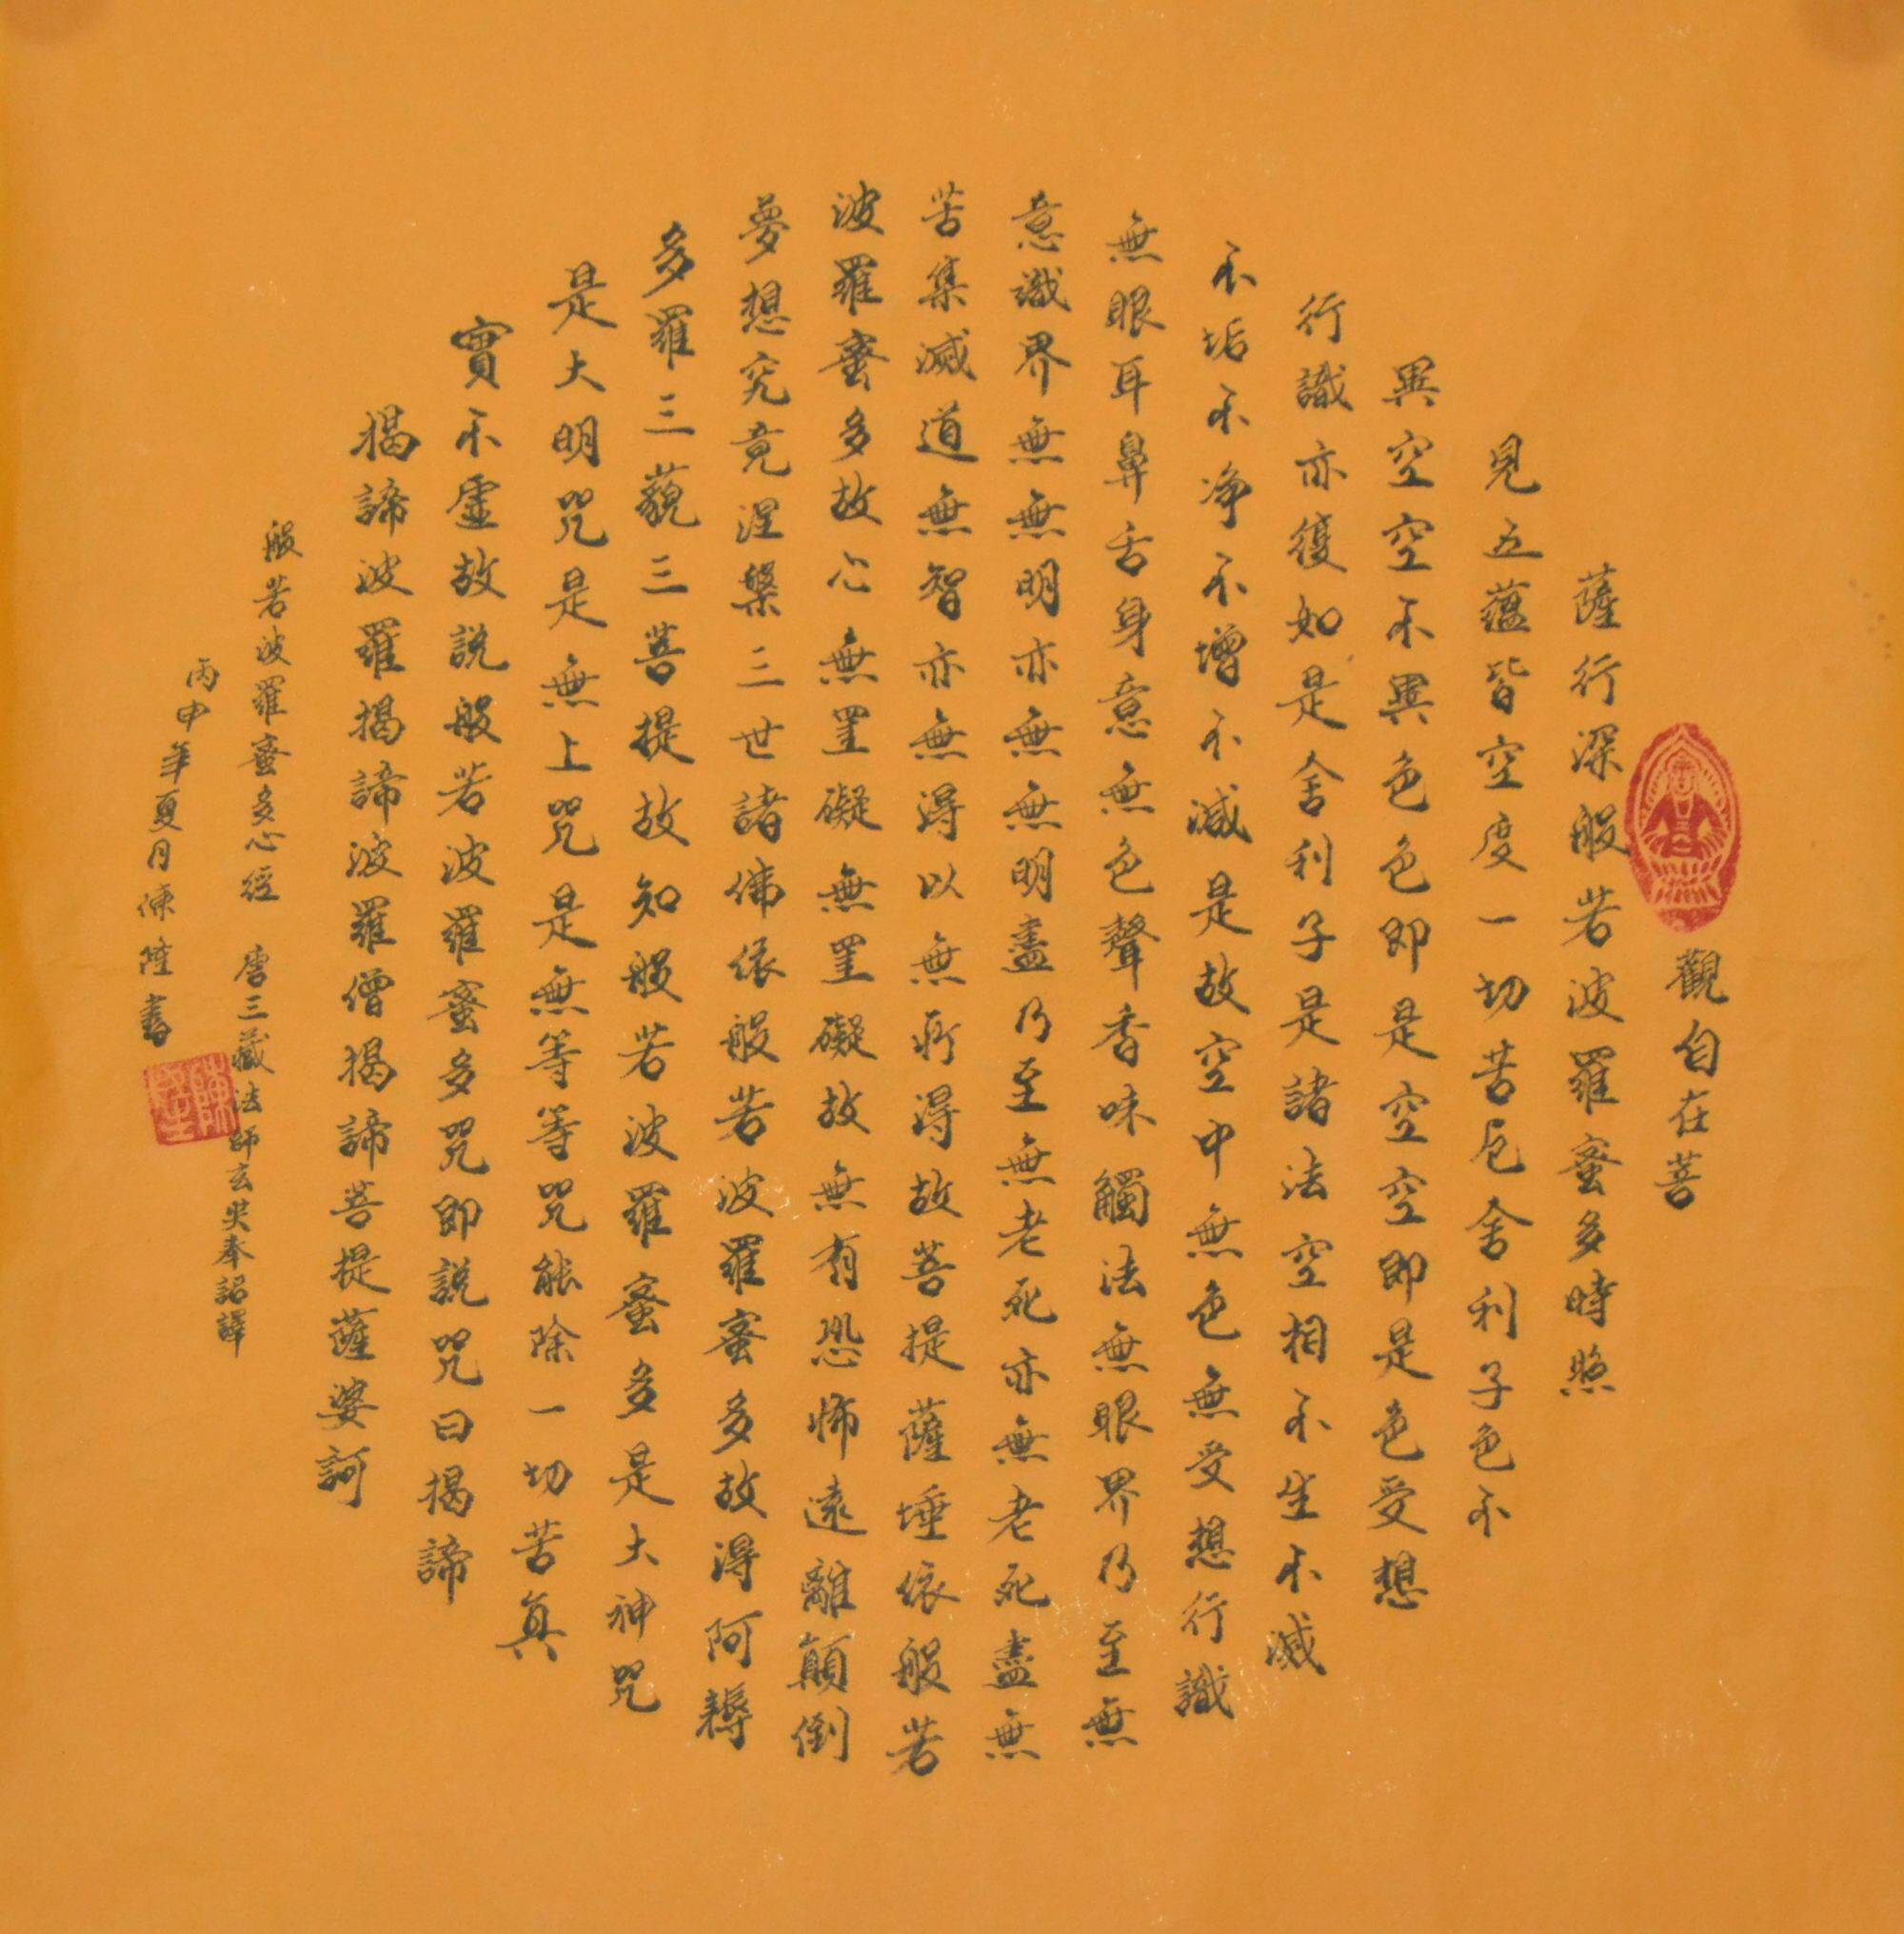 觀自在菩
薩行深般若波羅蜜多時照
見五蘊皆空度一切苦厄舍利子色不
異空空不異色色即是空空即是色受想
行識亦復如是舍利子是諸法空相不生不滅
不垢不净不增不減是故空中無色無受想行識
無眼耳鼻舌身意無色聲香味觸法無眼界乃至無
意識界無無明亦無無明盡乃至無老死亦無老死盡無
苦集滅道無智亦無得以無所得故菩提薩埵依般若
波羅蜜多故心無罣礙無罣礙故無有恐怖遠離顛倒
夢想究竟涅槃三世諸佛依般若波羅蜜多故得阿耨
多羅三藐三菩提故知般若波羅蜜多是大神咒
是大明咒是無上咒是無等等咒能除一切苦真
實不虛故說般若波羅蜜多咒即說咒曰揭諦
揭諦波羅揭諦波羅僧揭諦菩提薩婆訶
般若波羅蜜多心經 唐三藏法師玄奘奉詔譯
丙申年夏月陳陸書